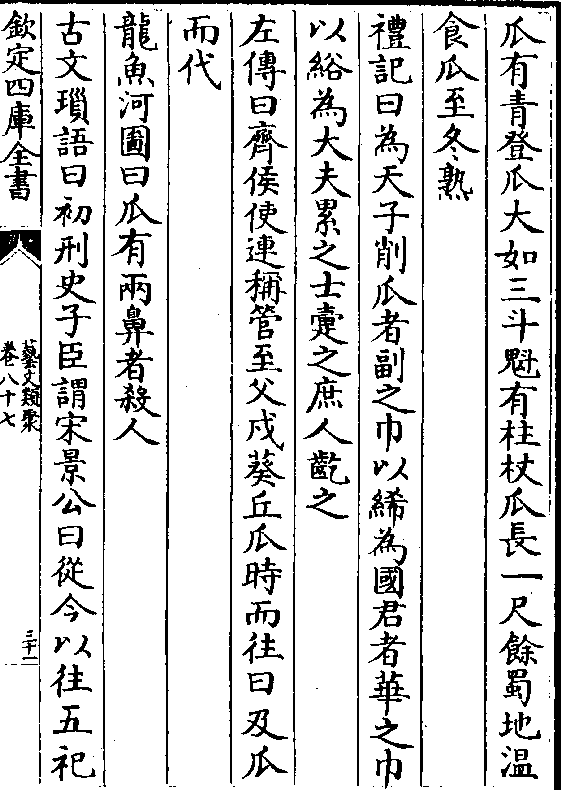 瓜有青登瓜大如三斗魁有柱杖瓜長一尺餘蜀地温
食瓜至冬熟
禮記曰為天子削瓜者副之巾以絺為國君者華之巾
以綌為大夫累之士疐之庶人齕之
左傳曰齊侯使連稱管至父戍葵丘瓜時而往曰及瓜
而代
龍魚河圖曰瓜有兩鼻者殺人
古文瑣語曰初刑史子臣謂宋景公曰從今以往五祀
欽定四庫全書
藝文類聚
卷八十七
三十一